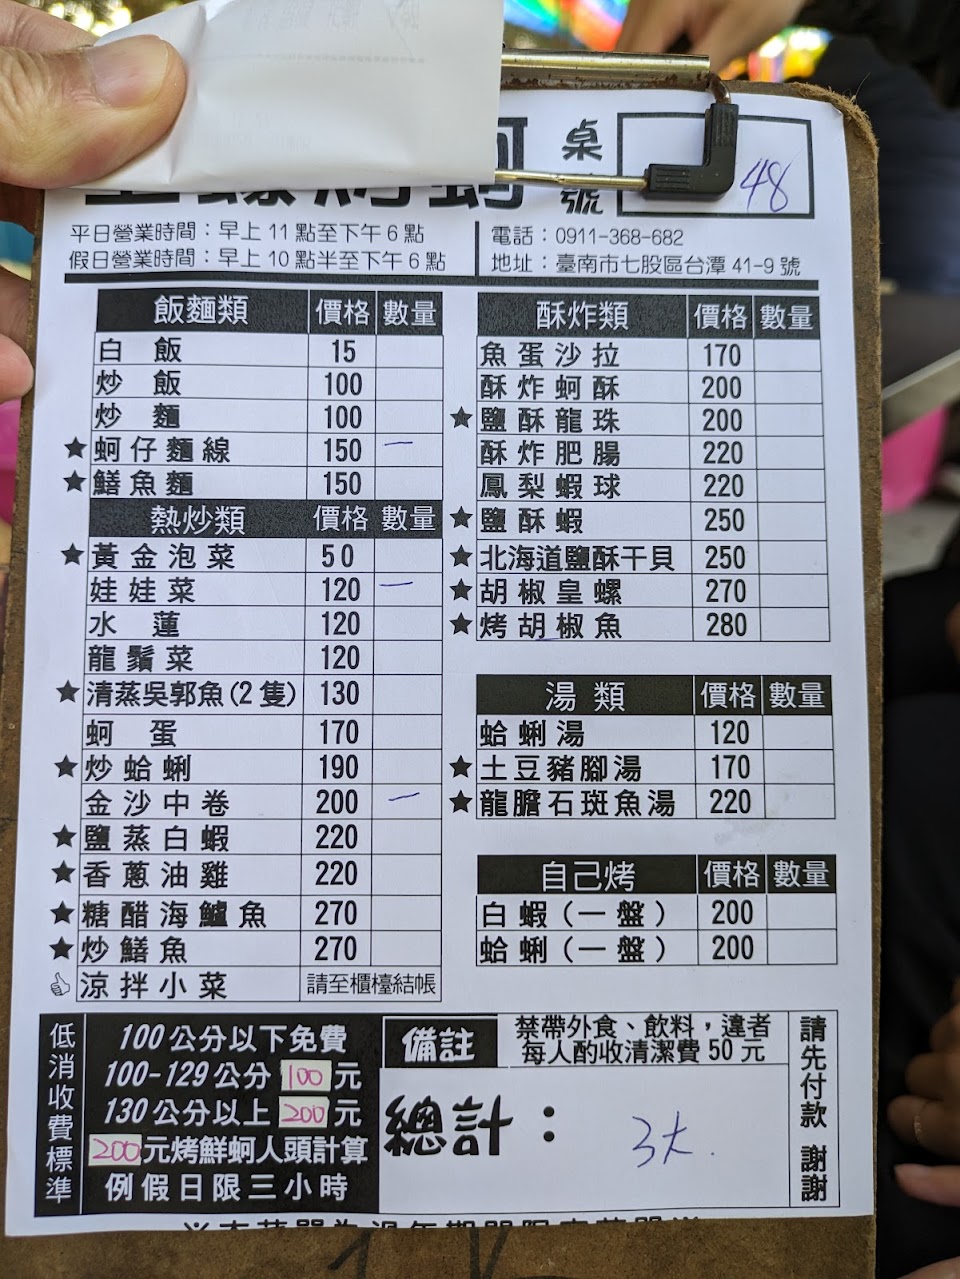 桌號
48
平日營業時間：早上 11 點至下午 6 點
假日營業時間：早上 10 點半至下午 6 點
電話：0911-368-682
地址：臺南市七股區台潭 41-9 號
飯麵類 價格 數量
白飯 15
炒飯 100
炒麵 100
★ 蚵仔麵線 150 一
★ 鱔魚麵 150
熱炒類 價格 數量
★ 黃金泡菜 50
娃娃菜 120 一
水蓮 120
龍鬚菜 120
★ 清蒸吳郭魚(2隻) 130
蚵蛋 170
★ 炒蛤蜊 190
金沙中卷 200 一
★ 鹽蒸白蝦 220
★ 香蔥油雞 220
★ 糖醋海鱸魚 270
★ 炒鱔魚 270
涼拌小菜 請至櫃檯結帳
酥炸類 價格 數量
魚蛋沙拉 170
酥炸蚵酥 200
★ 鹽酥龍珠 200
酥炸肥腸 220
鳳梨蝦球 220
★ 鹽酥蝦 250
★ 北海道鹽酥干貝 250
★ 胡椒皇螺 270
★ 烤胡椒魚 280
湯類 價格 數量
蛤蜊湯 120
★ 土豆豬腳湯 170
★ 龍膽石斑魚湯 220
自己烤 價格 數量
白蝦（一盤） 200
蛤蜊（一盤） 200
低消收費標準
100公分以下免費
100-129公分 100 元
130公分以上 200 元
200元烤鮮蚵人頭計算
例假日限三小時
備註
禁帶外食、飲料，違者
每人酌收清潔費 50 元
總計：
3大.
請先付款 謝謝